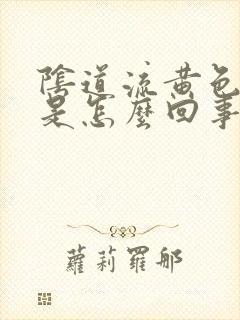 陰道流黃色
是怎麼回事
蘿莉羅郍